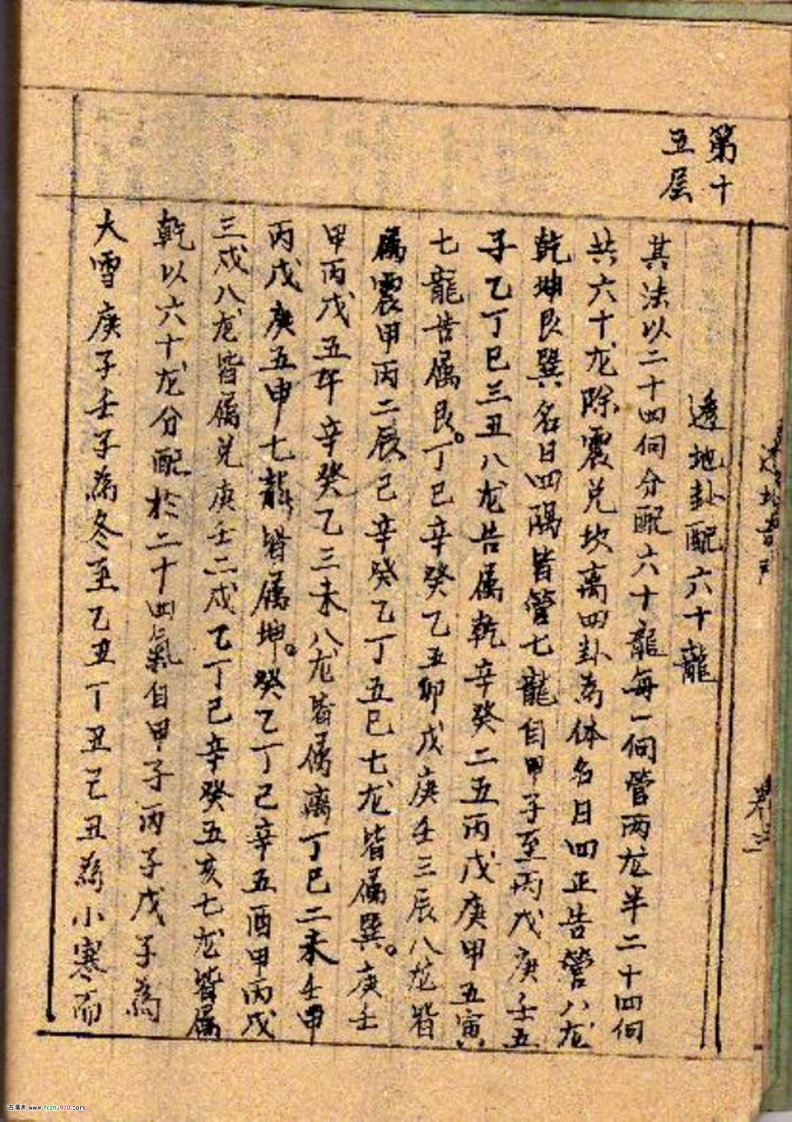 第十
五层
透地卦配六十龍
其法以二十四向分配六十龍每一向管两龙半二十四向
共六十龙除震兑坎离四卦为体名曰四正告管八龙
乾坤艮巽名曰四隅皆管七龍自甲子至丙戊庚壬五
子乙丁巳三丑八龙告属乾辛癸二五丙戊庚甲五寅
七龍告属艮。丁巳辛癸乙五卯戊庚壬三辰八龙皆
属震甲丙二辰己辛癸乙丁五巳七龙皆属巽。庚壬
甲丙戊五午辛癸乙三未八龙皆属离丁巳二未壬甲
丙戊庚五申七龍皆属坤。癸乙丁己辛五酉甲丙戊
三戍八龙皆属兑庚壬二戍乙丁己辛癸五亥七龙皆属
乾以六十龙分配於二十四氣自甲子丙子戊子為
大雪庚子壬子為冬至乙丑丁丑己丑為小寒而
卷三
古籍网 www.fczhu920.com